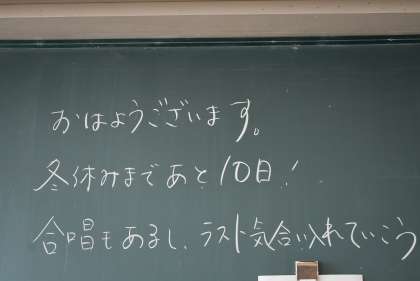 おはようございます。
冬休みまであと10日!
合唱もあるし、ラスト気合い入れていこう